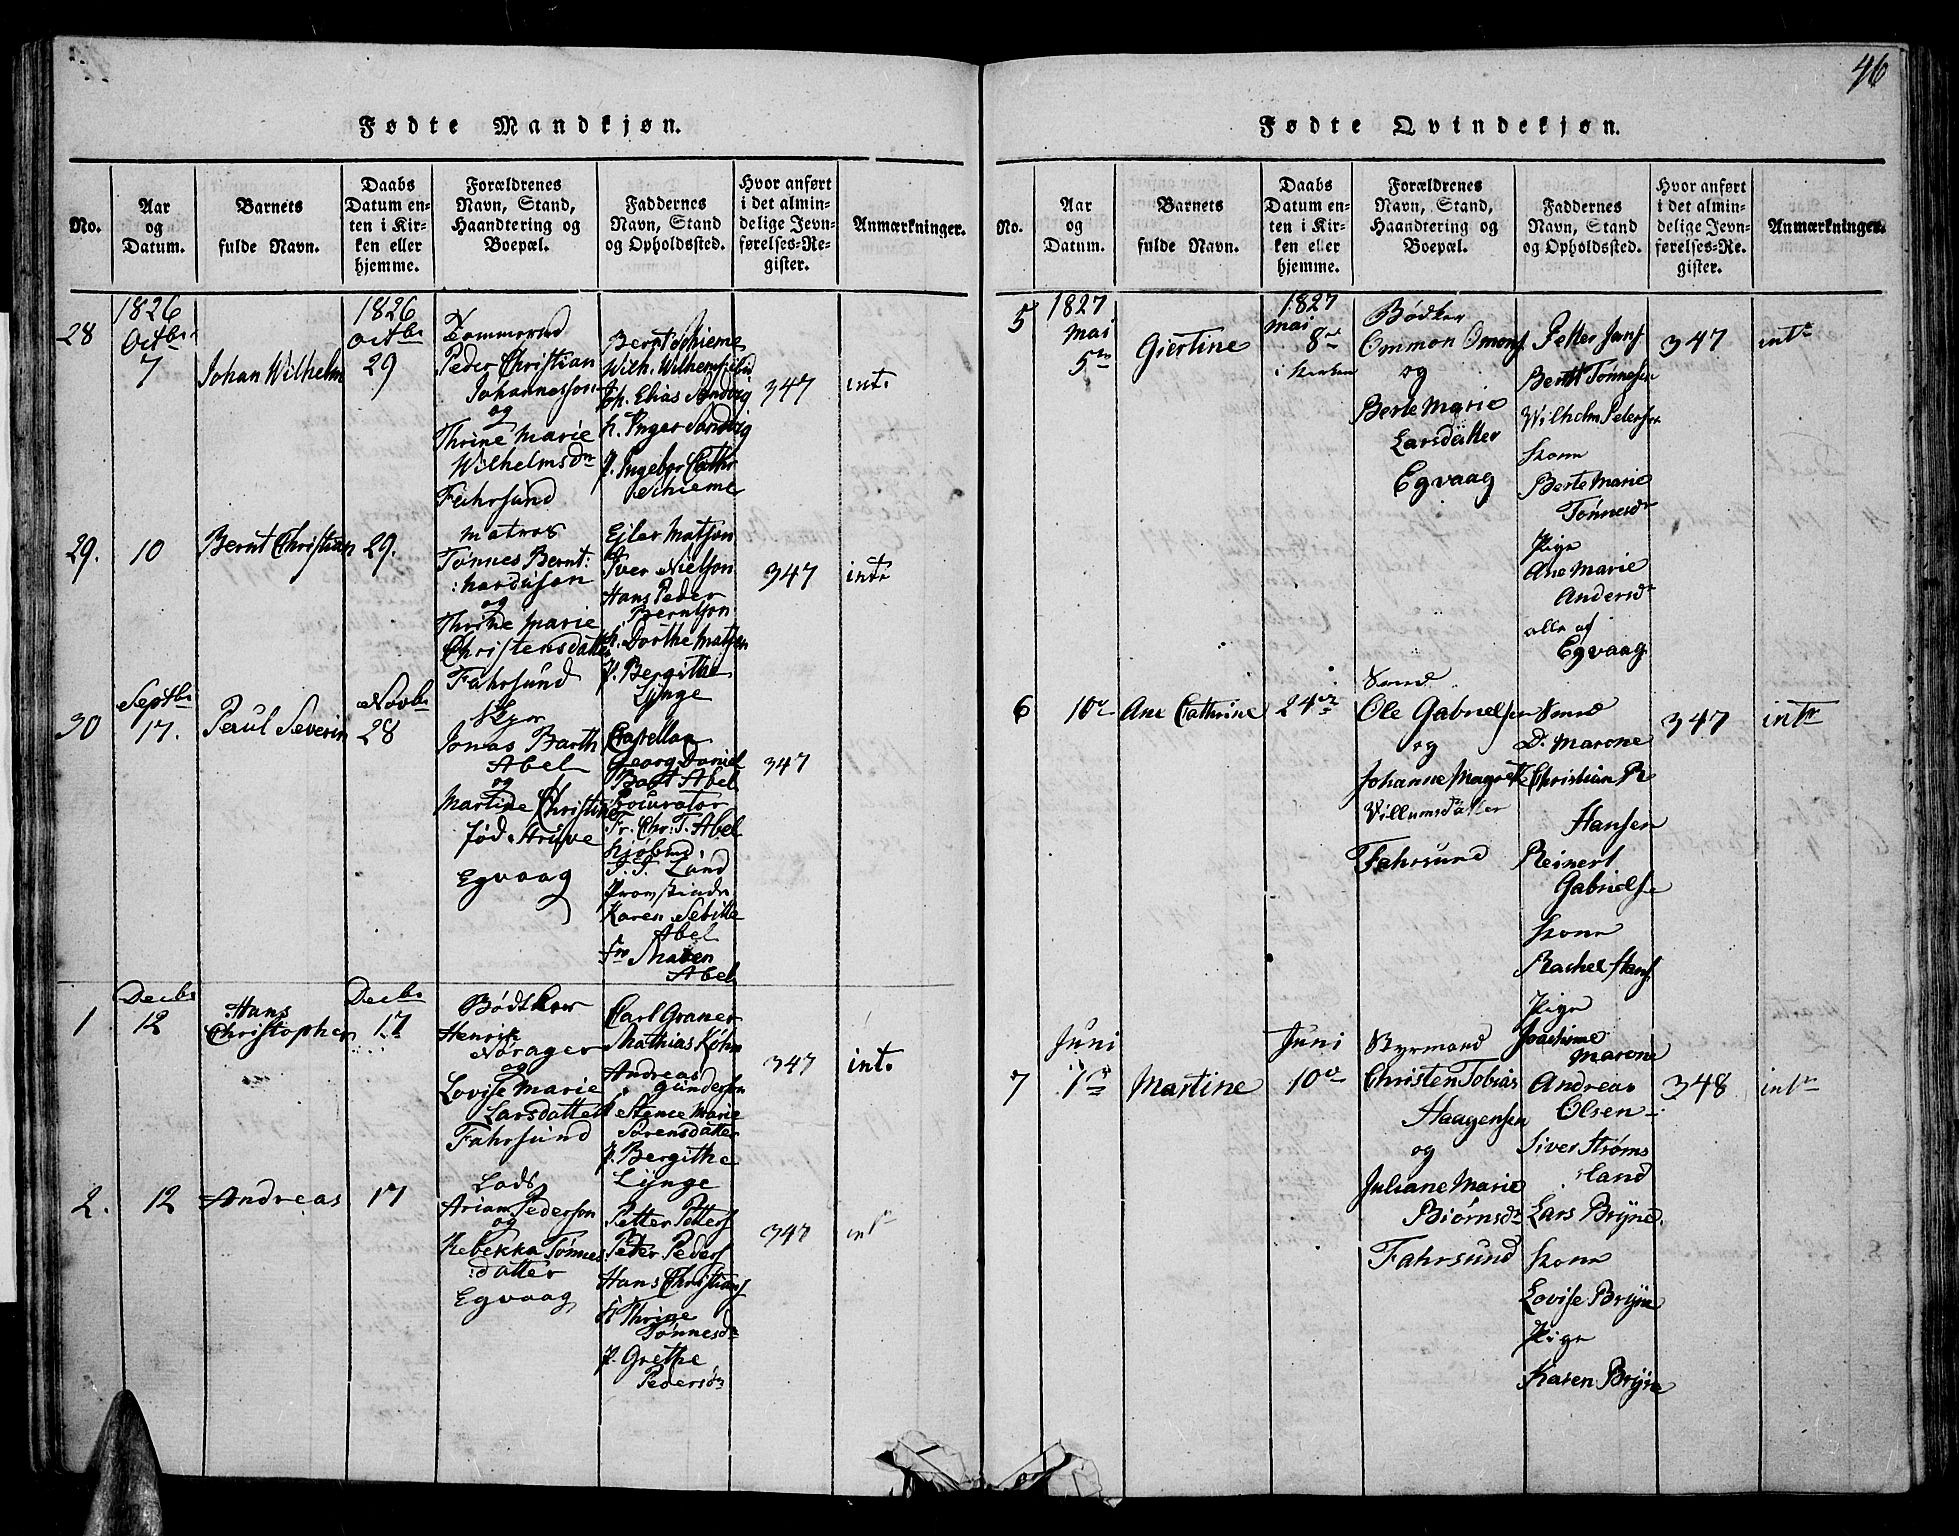 46
Fødte Mandkjøn.
No.
Aar
og
Datum.
Barnets
fulde Navn.
Daabs
Datum en-
ten i Kir-
ken eller
hjemme.
Forældrenes
Navn, Stand,
Haandtering og
Boepæl.
Faddernes
Navn, Stand
og Opholdssted.
Hvor anført
i det almin-
delige Jevn-
førelses-Re-
gister.
Anmærkninger.
28
1826
Octbr
7
Johan Wilhelm
1826
Octbr
29
Tømmermd
Peder Christian
Johannesson
og
Thrine Marie
Wilhelmsdr
Fahrsund
Bernt Schieme
Wilh. Wilhemsen
Joh. Elias Sandvig
k. Inger Sandvig
P. Ingebor Cathr
Schieme
347
int.
29.
10
Bernt Christian
29.
Matros
Tønnes Bernt:
:hardusson
og
Thrine Marie
Christensdatter
Fahrsund
Ejler Matson
Iver Nielson
Hans Peder
Berntson
k. Dorthe Matsen
P. Bergithe
Lÿnge
347
intr
30
Septbr
17.
Paul Severin
Novbr
28
Jonas Barth
Abel
og
Martine Christine
fød. Struve
Egvaag
Capellan
Georg Daniel
Bart Abel
Procurator
Fr. Chr. T. Abel
Kjøbmd.
Lund
Karen Sebille
Abel
Fru Maren
Abel
347
1
Decbr
12
Hans
Christopher
Decbr
17
Bødtker
Henrik
Norager
og
Lovise Marie
Larsdatter
Fahrsund
Carl Graner
Mathias Køhn
Andreas
Gunderson
k Stence Marie
Sørensdatter
P. Bergithe
Lÿnge
347
int.
2.
12
Andreas
17
Lods
Arian Pederson
og
Rebekka Tønnes
:datter
Egvaag
Petter Petters
Peder Peders
Hans Christians
k Thrine
Tønnesdr
P. Grethe
Pedersdr
347
int
Fødte Qvindekjøn.
No.
Aar
og
Datum.
Barnets
fulde Navn.
Daabs
Datum en-
ten i Kir-
ken eller
hjemme.
Forældrenes
Navn, Stand,
Haandtering og
Boepæl.
Faddernes
Navn, Stand
og Opholdssted.
Hvor anført
i det almin-
delige Jevn-
førelses-Re-
gister.
Anmærkninger.
5
1827
Mai
5te
Giertine
1827
Mai
8de
i Kirken
Bødker
Ommon Omons
og
Berte Marie
Larsdatter
Egvaag
Petter Jens
Berntt Tønnesen
Wilhelm Petersen
Kone
Berte Marie
Tønnesdr
Pige
Ane Marie
Andersdr
alle af
Egvaag
347
intr
6
10de
Ane Cathrine
24de
Ole Gabrielsen
og
Johanne Magrete
Villumsdatter
Fahrsund
D. Marone
Christian
Hansen
Reinert
Gabrielse
Kone
Rachel Hans
Pige
Joachime
Marone
347
intr
7
Juni
1ste
Martine
Juni
10de
Styrmand
Christen Tobias
Haagensen
og
Juliane Marie
Biørnsdr
Fahrsund
Andreas
Olsen
Siver Strøms
:land
Lars Brÿne
Kone
Lovise Brÿne
Pige
Karen Brÿne
348
intr